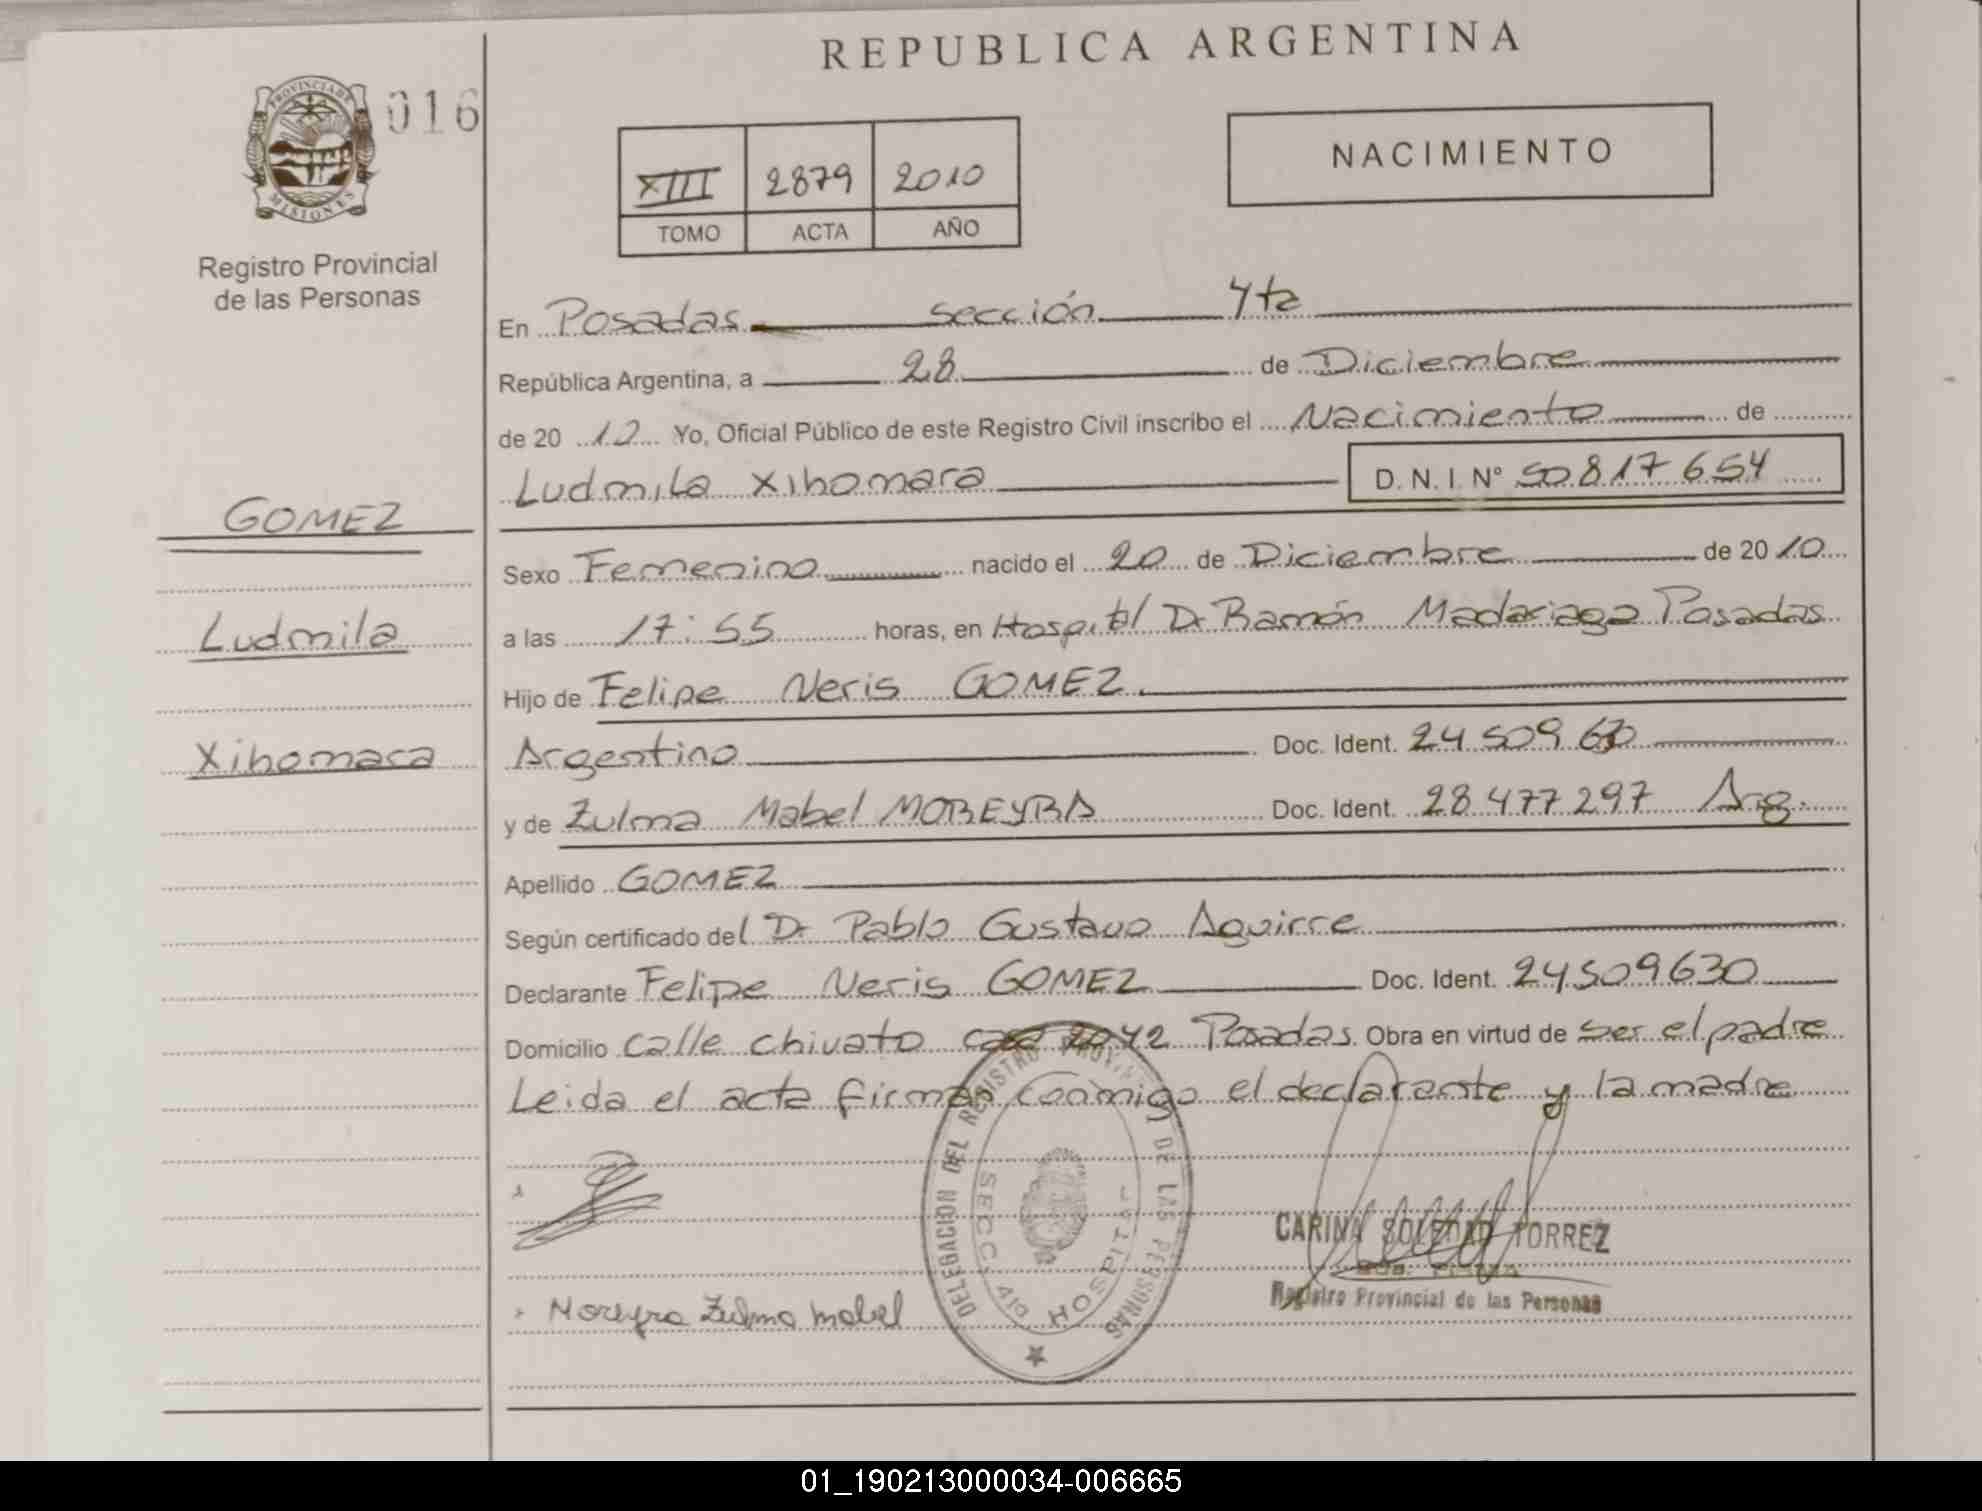 REPUBLICA ARGENTINA
PROVINCIA DE
MISIONES
016
Registro Provincial
de las Personas
XIII 2879 2010
TOMO ACTA AÑO
NACIMIENTO
En Posadas sección 4ta
República Argentina, a 28 de Diciembre
de 20 10 Yo, Oficial Público de este Registro Civil inscribo el Nacimiento de
Ludmila Xihomara D. N. I. N° 50 817 654
GOMEZ
Ludmila
Xihomara
Sexo Femenino nacido el 20 de Diciembre de 20 10
a las 17:55 horas, en Hospital Dr Ramón Madariaga Posadas
Hijo de Felipe Neris GOMEZ
Argentino Doc. Ident. 24 509 630
y de Zulma Mabel MOREYRA Doc. Ident. 28 477 297 Arg.
Apellido GOMEZ
Según certificado del Dr Pablo Gustavo Aguirre
Declarante Felipe Neris GOMEZ Doc. Ident. 24509630
Domicilio calle chivato casa 2042 Posadas Obra en virtud de ser el padre
Leida el acta firman conmigo el declarante y la madre
DELEGACION DEL REGISTRO PROVINCIAL DE LAS PERSONAS
SECC. 4ta HOSPITAL
CARINA SOLEDAD TORREZ
Registro Provincial de las Personas
Moreyra Zulma mabel
01_190213000034-006665